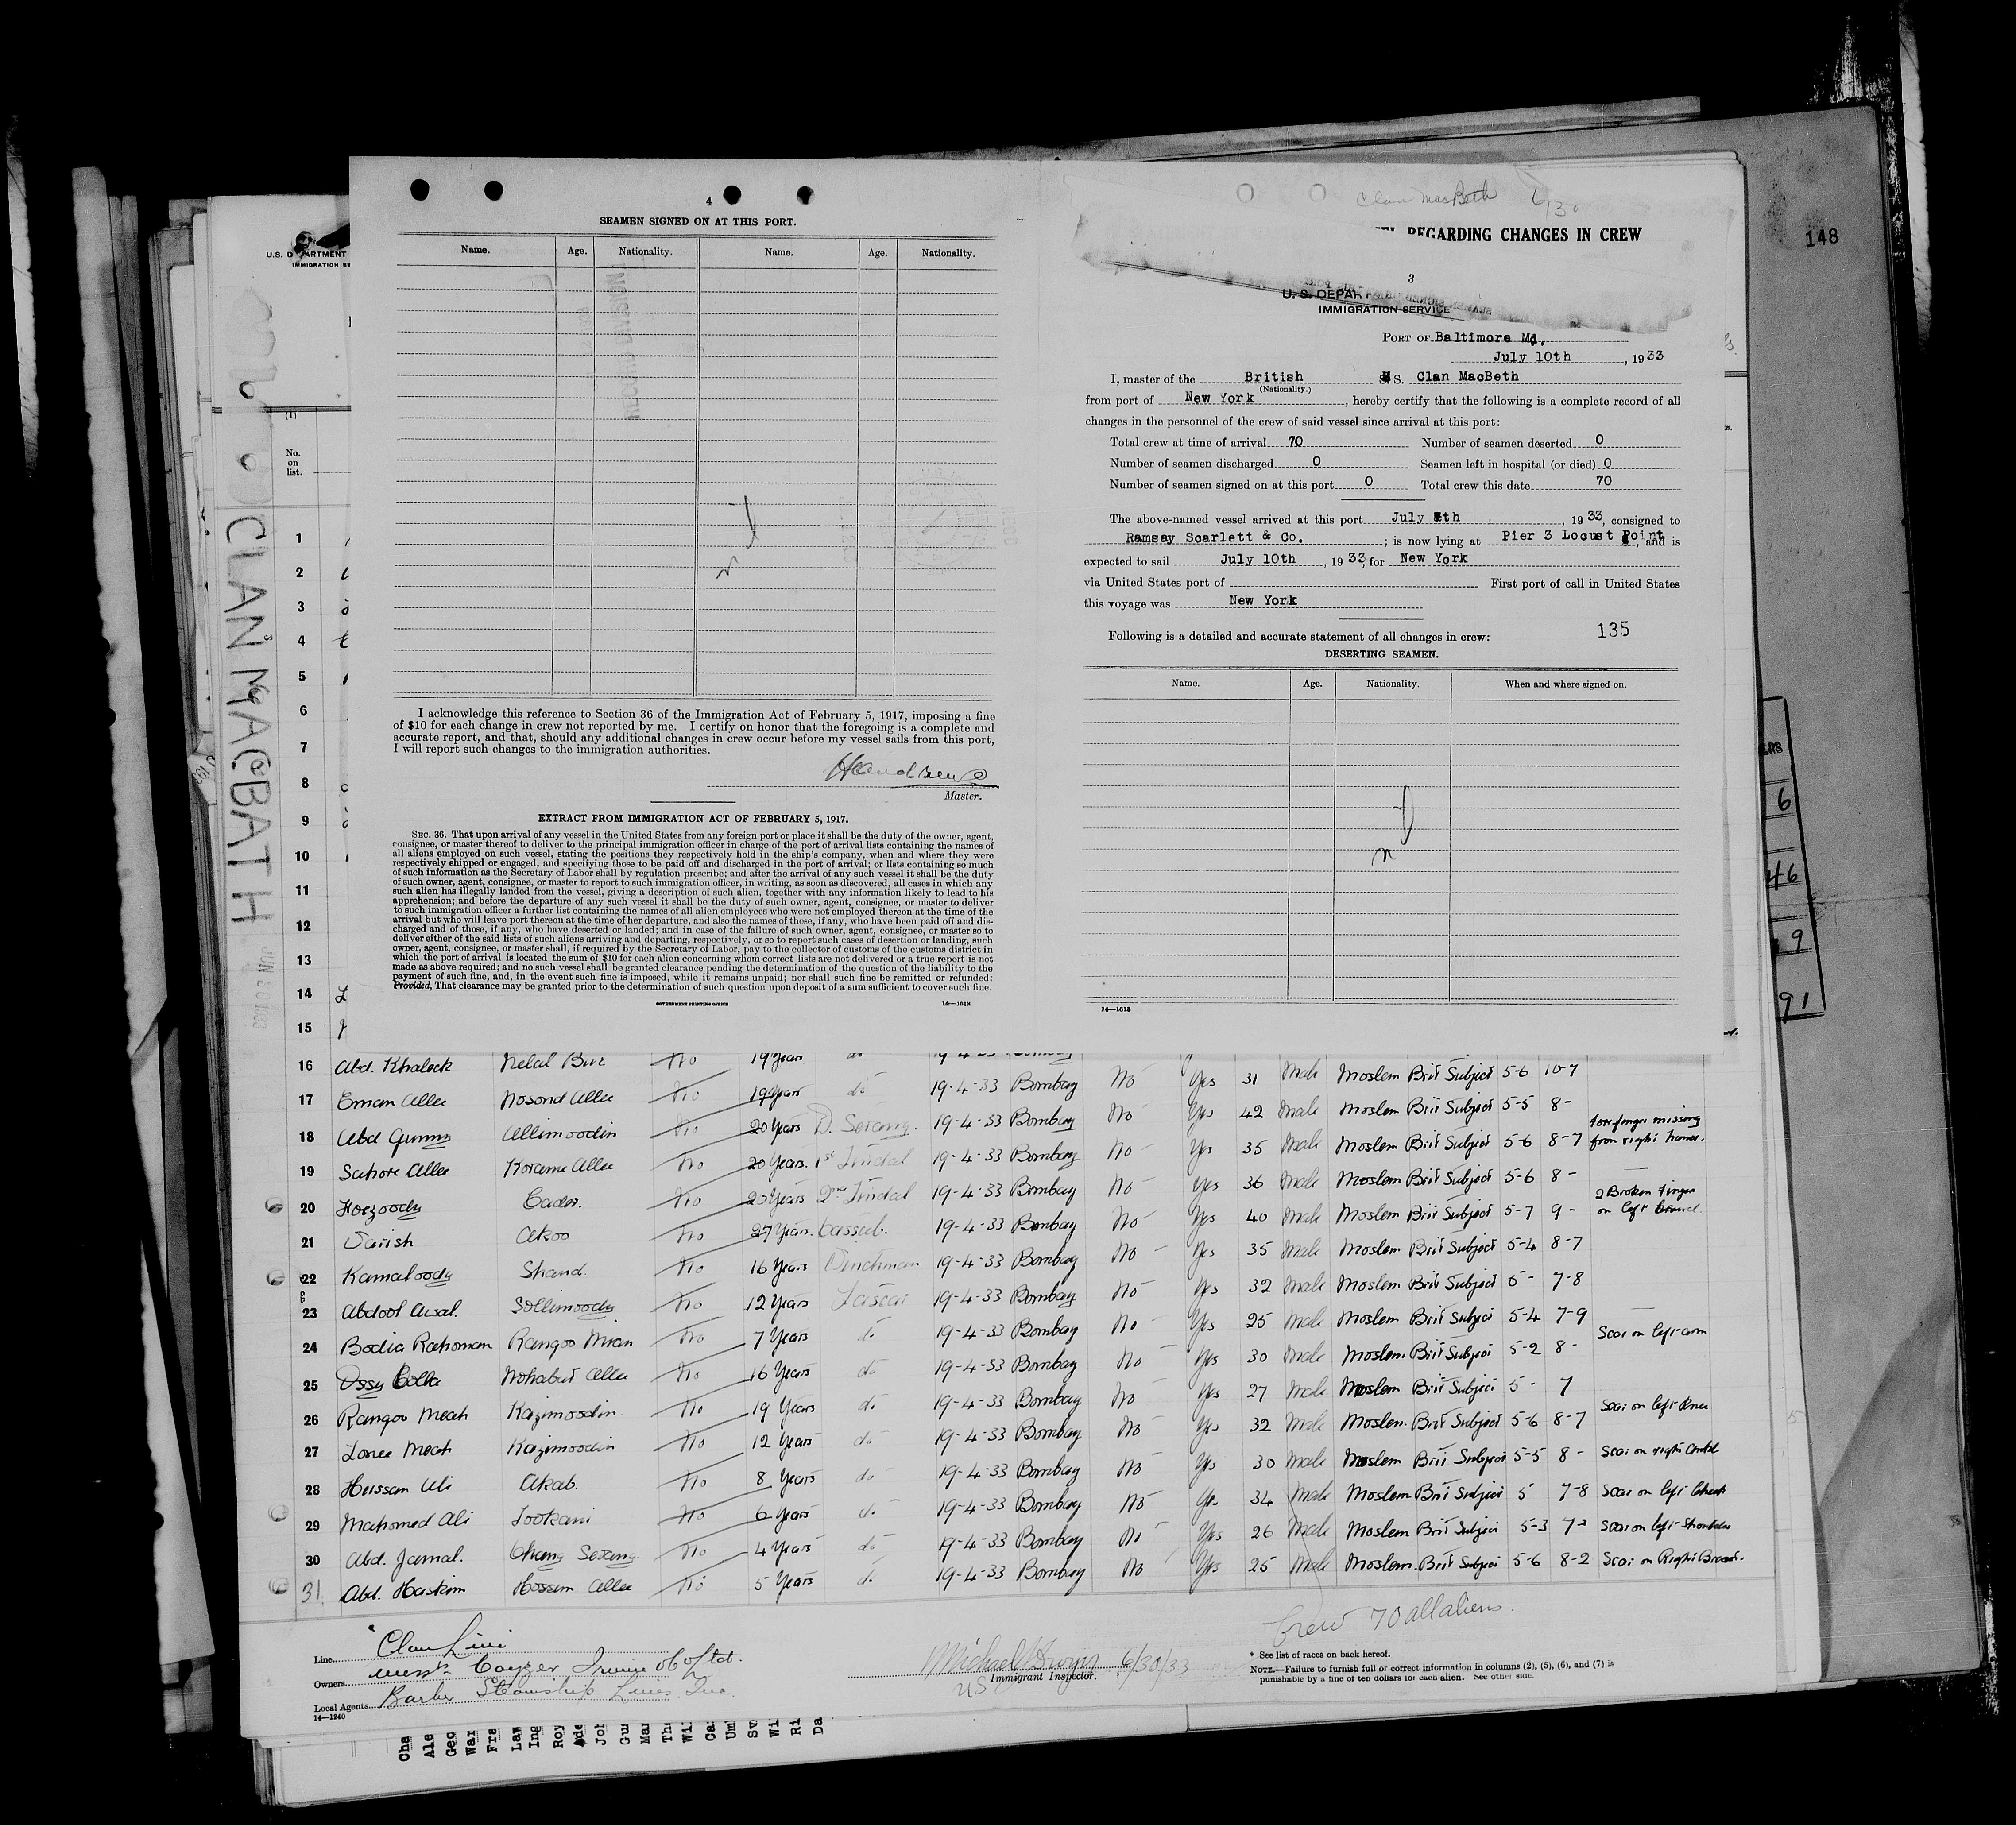 148
4
SEAMEN SIGNED ON AT THIS PORT.
Name. Age. Nationality. Name. Age. Nationality.
RECORD DIVISION
I acknowledge this reference to Section 36 of the Immigration Act of February 5, 1917, imposing a fine
of $10 for each change in crew not reported by me. I certify on honor that the foregoing is a complete and
accurate report, and that, should any additional changes in crew occur before my vessel sails from this port,
I will report such changes to the immigration authorities.
Master.
EXTRACT FROM IMMIGRATION ACT OF FEBRUARY 5, 1917.
SEC. 36. That upon arrival of any vessel in the United States from any foreign port or place it shall be the duty of the owner, agent,
consignee, or master thereof to deliver to the principal immigration officer in charge of the port of arrival lists containing the names of
all aliens employed on such vessel, stating the positions they respectively hold in the ship's company, when and where they were
respectively shipped or engaged, and specifying those to be paid off and discharged in the port of arrival; or lists containing so much
of such information as the Secretary of Labor shall by regulation prescribe; and after the arrival of any such vessel it shall be the duty
of such owner, agent, consignee, or master to report to such immigration officer, in writing, as soon as discovered, all cases in which any
such alien has illegally landed from the vessel, giving a description of such alien, together with any information likely to lead to his
apprehension; and before the departure of any such vessel it shall be the duty of such owner, agent, consignee, or master to deliver
to such immigration officer a further list containing the names of all alien employees who were not employed thereon at the time of the
arrival but who will leave port thereon at the time of her departure, and also the names of those, if any, who have been paid off and dis-
charged and of those, if any, who have deserted or landed; and in case of the failure of such owner, agent, consignee, or master so to
deliver either of the said lists of such aliens arriving and departing, respectively, or so to report such cases of desertion or landing, such
owner, agent, consignee, or master shall, if required by the Secretary of Labor, pay to the collector of customs of the customs district in
which the port of arrival is located the sum of $10 for each alien concerning whom correct lists are not delivered or a true report is not
made as above required; and no such vessel shall be granted clearance pending the determination of the question of the liability to the
payment of such fine, and, in the event such fine is imposed, while it remains unpaid; nor shall such fine be remitted or refunded:
Provided, That clearance may be granted prior to the determination of such question upon deposit of a sum sufficient to cover such fine.
GOVERNMENT PRINTING OFFICE 14—1613
Clan MacBeth 6/30
REGARDING CHANGES IN CREW
3
U. S. DEPAR
IMMIGRATION SERVICE
PORT OF Baltimore Md.
July 10th, 1933
I, master of the British S. S. Clan MacBeth
(Nationality.)
from port of New York, hereby certify that the following is a complete record of all
changes in the personnel of the crew of said vessel since arrival at this port:
Total crew at time of arrival 70 Number of seamen deserted 0
Number of seamen discharged 0 Seamen left in hospital (or died) 0
Number of seamen signed on at this port 0 Total crew this date 70
The above-named vessel arrived at this port July th, 1933, consigned to
Ramsay Scarlett & Co.; is now lying at Pier 3 Locust Point, and is
expected to sail July 10th, 1933, for New York
via United States port of First port of call in United States
this voyage was New York
Following is a detailed and accurate statement of all changes in crew:
135
DESERTING SEAMEN.
Name. Age. Nationality. When and where signed on.
14—1613
U.S. D RTMENT
IMMIGRATION SE
(1)
No.
on
list.
CLAN MACBATH
1
2
3
4
5
6
7
8
9
10
11
12
13
14
15
16 Abd. Khaleck Helal Bux No 19 Years do
17 Eman Allee Nosond Allee No 19 Years do 19-4-33 Bombay No Yes 31 Male Moslem Brit Subject 5-6 10-7
18 Abd Gunny Allimoodin No 20 Years D. Serang. 19-4-33 Bombay No Yes 42 Male Moslem Brit Subject 5-5 8-
19 Sahore Allee Korame Allee No 20 Years. 1st Tindal 19-4-33 Bombay No Yes 35 Male Moslem Brit Subject 5-6 8-7 forefinger missing from right
20 Foezoody Cader. No 20 Years 2nd Tindal 19-4-33 Bombay No Yes 36 Male Moslem Brit Subject 5-6 8-
21 Warish Akoo No 27 Years. Cassab. 19-4-33 Bombay No Yes 40 Male Moslem Brit Subject 5-7 9- 2 Broken finger on left
22 Kamaloody Shand. No 16 Years Winchman 19-4-33 Bombay No Yes 35 Male Moslem Brit Subject 5-4 8-7
23 Abdool Ausal. Sollimoody No 12 Years Lascar 19-4-33 Bombay No Yes 32 Male Moslem Brit Subject 5- 7-8
24 Bodia Rahoman Rangoo Mian No 7 Years do 19-4-33 Bombay No Yes 25 Male Moslem Brit Subject 5-4 7-9
25 Ossy Mohabut Allee No 16 Years do 19-4-33 Bombay No Yes 30 Male Moslem. Brit Subject 5-2 8- Scar on left arm
26 Rangoo Meah Kazimoodin No 19 Years do 19-4-33 Bombay No Yes 27 Male Moslem Brit Subject 5- 7
27 Lonee Meah Kazimoodin No 12 Years do 19-4-33 Bombay No Yes 32 Male Moslem. Brit Subject 5-6 8-7 Scar on left knee
28 Hussan Uli Akab. No 8 Years do 19-4-33 Bombay No Yes 30 Male Moslem Brit Subject 5-5 8- Scar on right
29 Mahomed Ali Tookani No 6 Years do 19-4-33 Bombay No Yes 34 Male Moslem Brit Subject 5 7-8 Scar on left Cheek
30 Abd. Jamal. Chang Serang. No 4 Years do 19-4-33 Bombay No Yes 26 Male Moslem Brit Subject 5-3 Scar on left Shoulder
31. Abd. Haskim Hossem Allee No 5 Years do 19-4-33 Bombay No Yes 25 Male Moslem. Brit Subject 5-6 8-2 Scar on Right Breast.
Crew 70 all aliens.
Line Clan Line
Owners Messrs Cayzer Irvine & Co Ltd.
Local Agents Barber Steamship Lines Inc.
14—1240
Michael Dwyer 6/30/33
US Immigrant Inspector.
* See list of races on back hereof.
NOTE.—Failure to furnish full or correct information in columns (2), (5), (6), and (7) is
punishable by a fine of ten dollars for each alien. See other side.
Cha
Ale
Geo
War
Fra
Law
Ing
Roy
Ade
Joh
Gu
Mar
Th
Wi
Ca
Um
Sv
Wi
Ri
Da
6
46
9
91